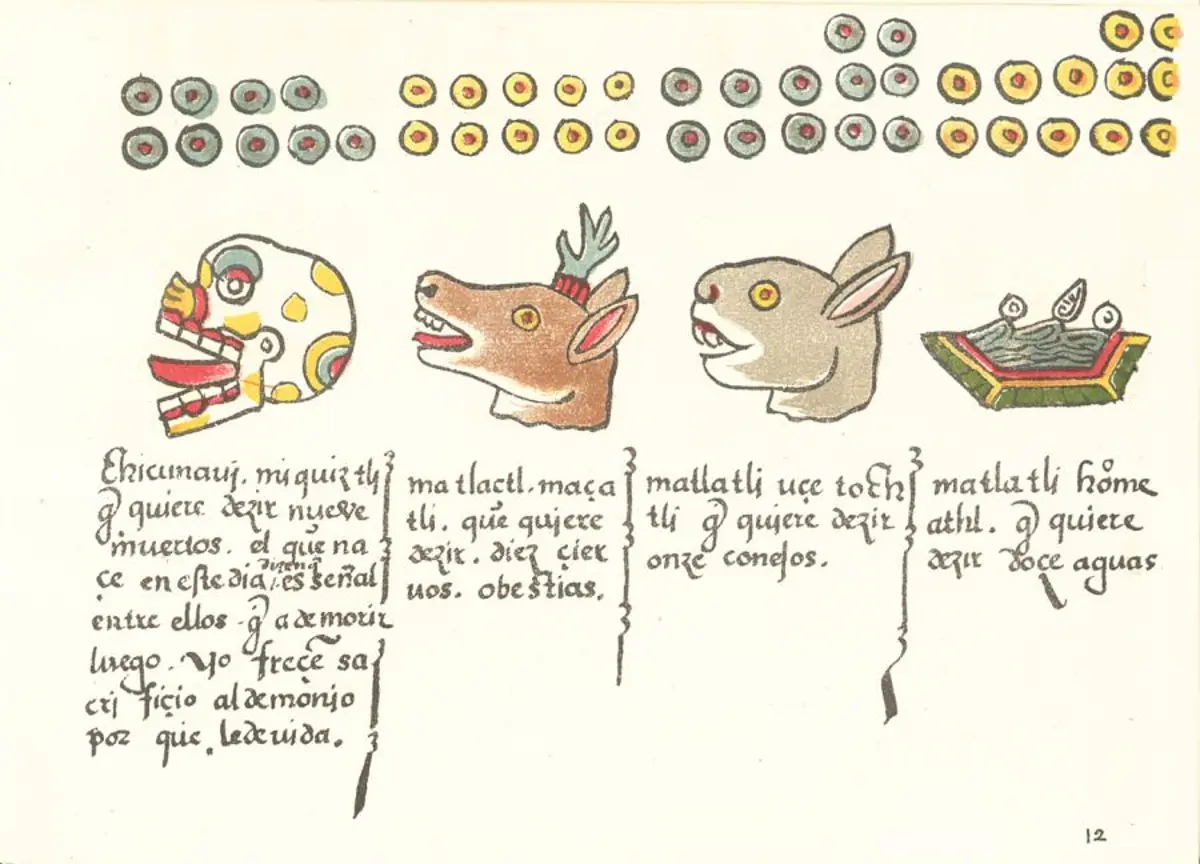 Chicunauj. miquiztli
q̃ quiere dezir nueve
muertos. el que na
çe en este dia, dizenq̃ es señal
entre ellos q̃ a de morir
luego. Yo frecẽ sa
cri fiçio al demonjo
por que. le de vida.
matlactl. maça
tli. que qujere
dezir. diez çier
uos. obestias.
matlatli uçe toch
tli q̃ qujere dezir
onze conejos.
matlatli home
athl. q̃ quiere
dezir doce aguas
12